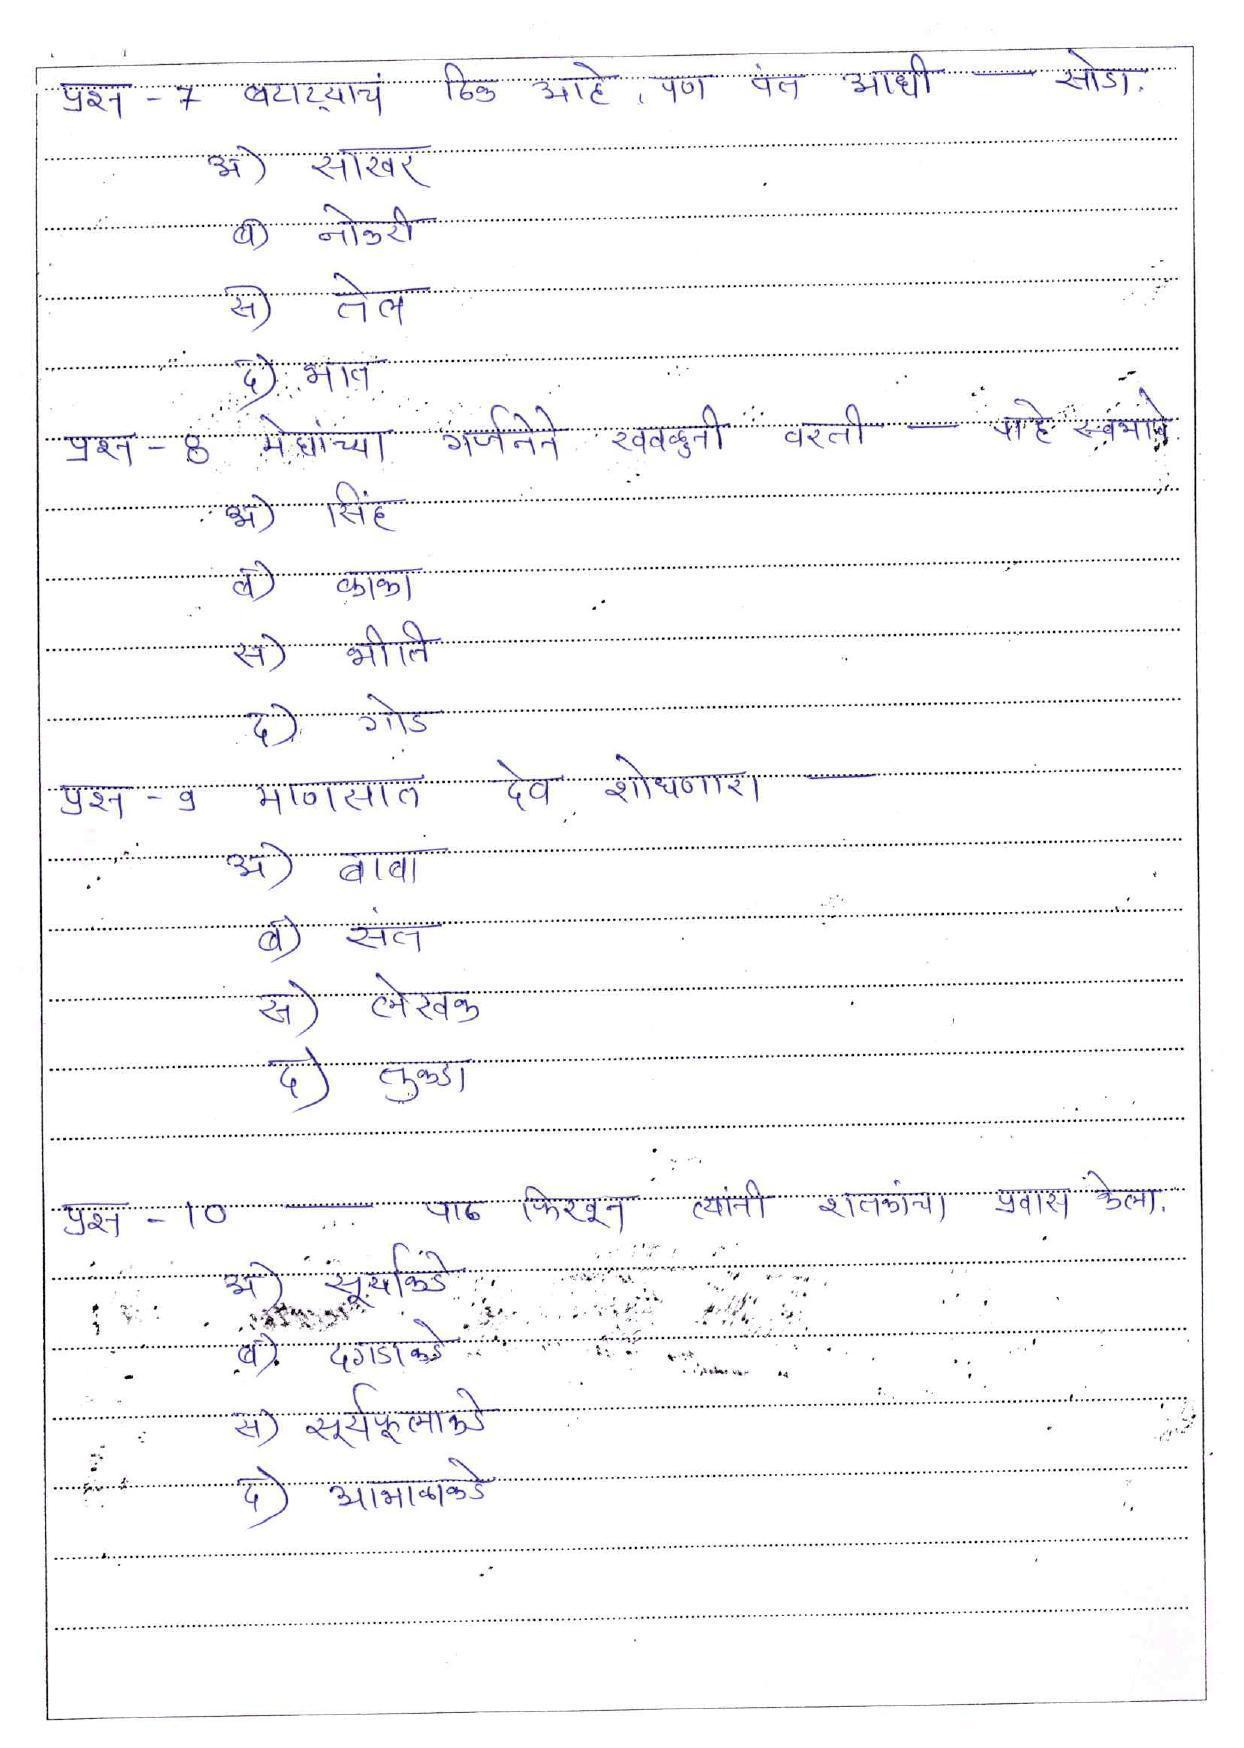 प्रश्न - 7 बटाट्याचं ठिक आहे, पण पंत आधी — सोडा.
अ) साखर
ब) नोकरी
स) तेल
द) भात
प्रश्न - 8 मेघांच्या गर्जनेने खवळुनी वरती — पाहे स्वभावे
अ) सिंह
ब) काका
स) भीति
द) गोड
प्रश्न - 9 माणसात देव शोधणारा —
अ) बाबा
ब) संत
स) लेखक
द) तुकडा
प्रश्न - 10 — पाठ फिरवून त्यांनी शतकांचा प्रवास केला.
अ) सूर्याकडे
ब) दगडाकडे
स) सूर्यफूलाकडे
द) आभाळाकडे